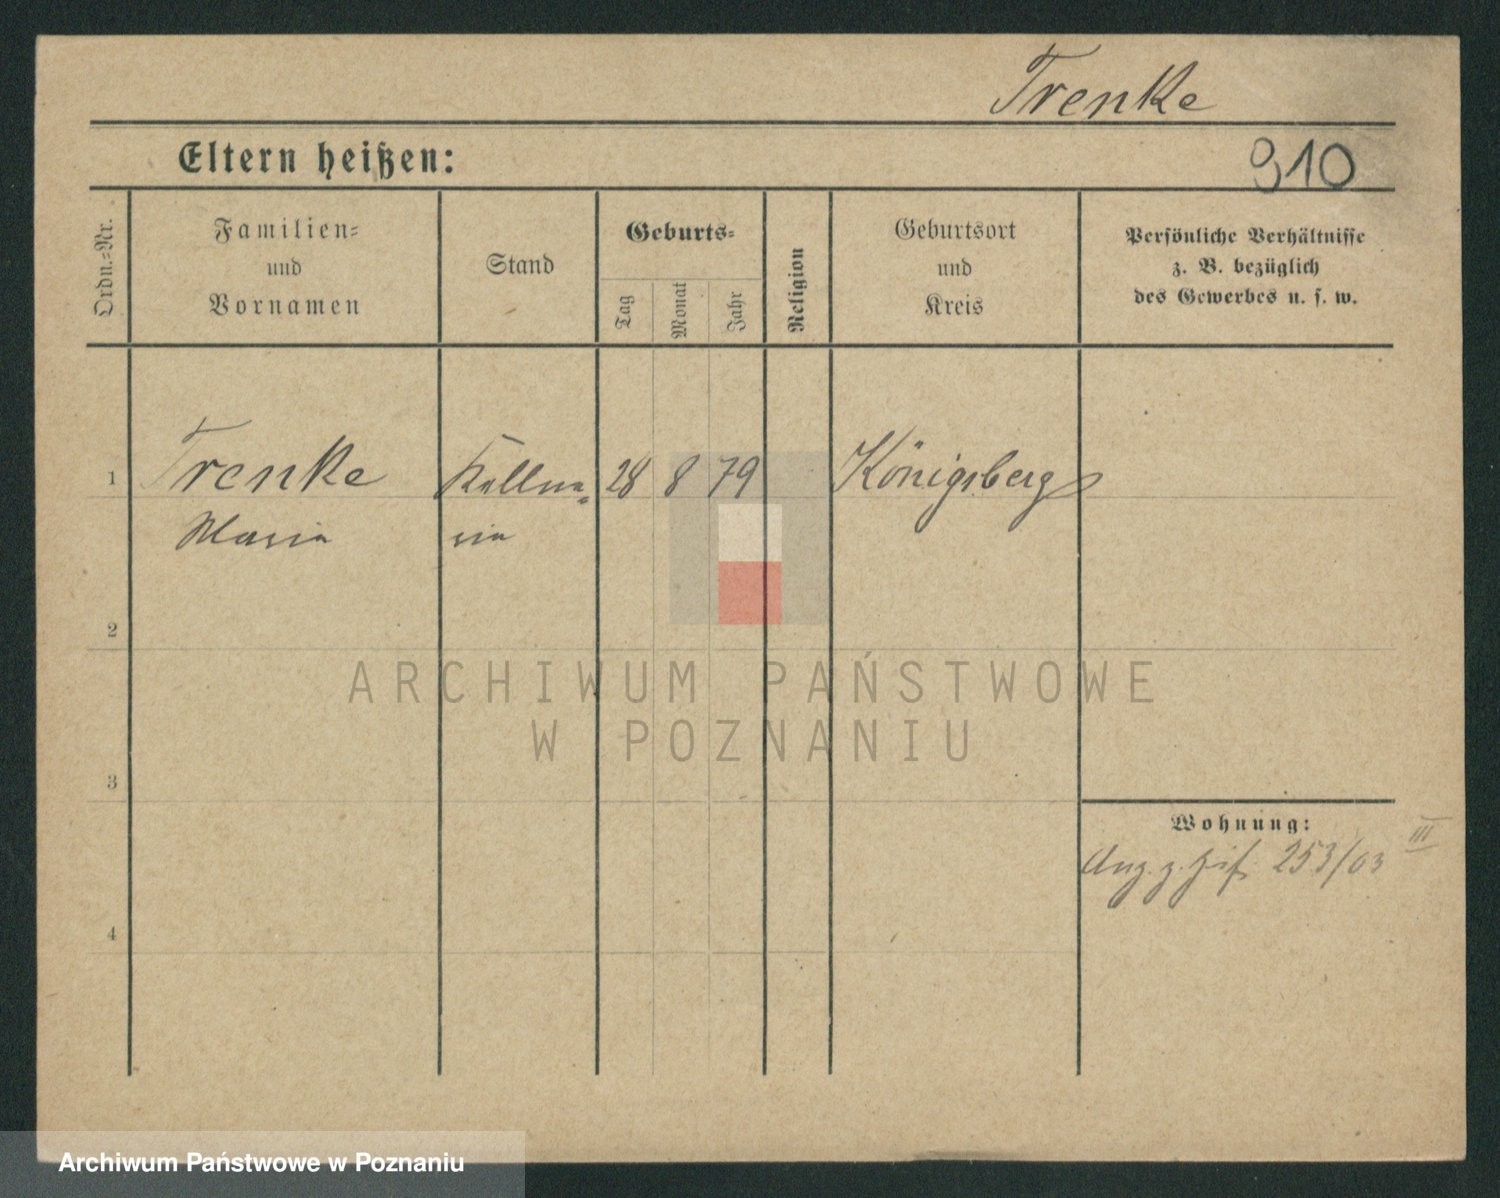 Trenke
Eltern heißen:
910
Ordn.-Nr.
Familien-
und
Vornamen
Stand
Geburts-
Tag
Monat
Jahr
Religion
Geburtsort
und
Kreis
Persönliche Verhältnisse
z. B. bezüglich
des Gewerbes u. s. w.
1 Trenke Kellne- 28 8 79 Königsberg
Maria rin
2
ARCHIWUM PAŃSTWOWE
W POZNANIU
3
Wohnung:
III
253/03
4
Archiwum Państwowe w Poznaniu